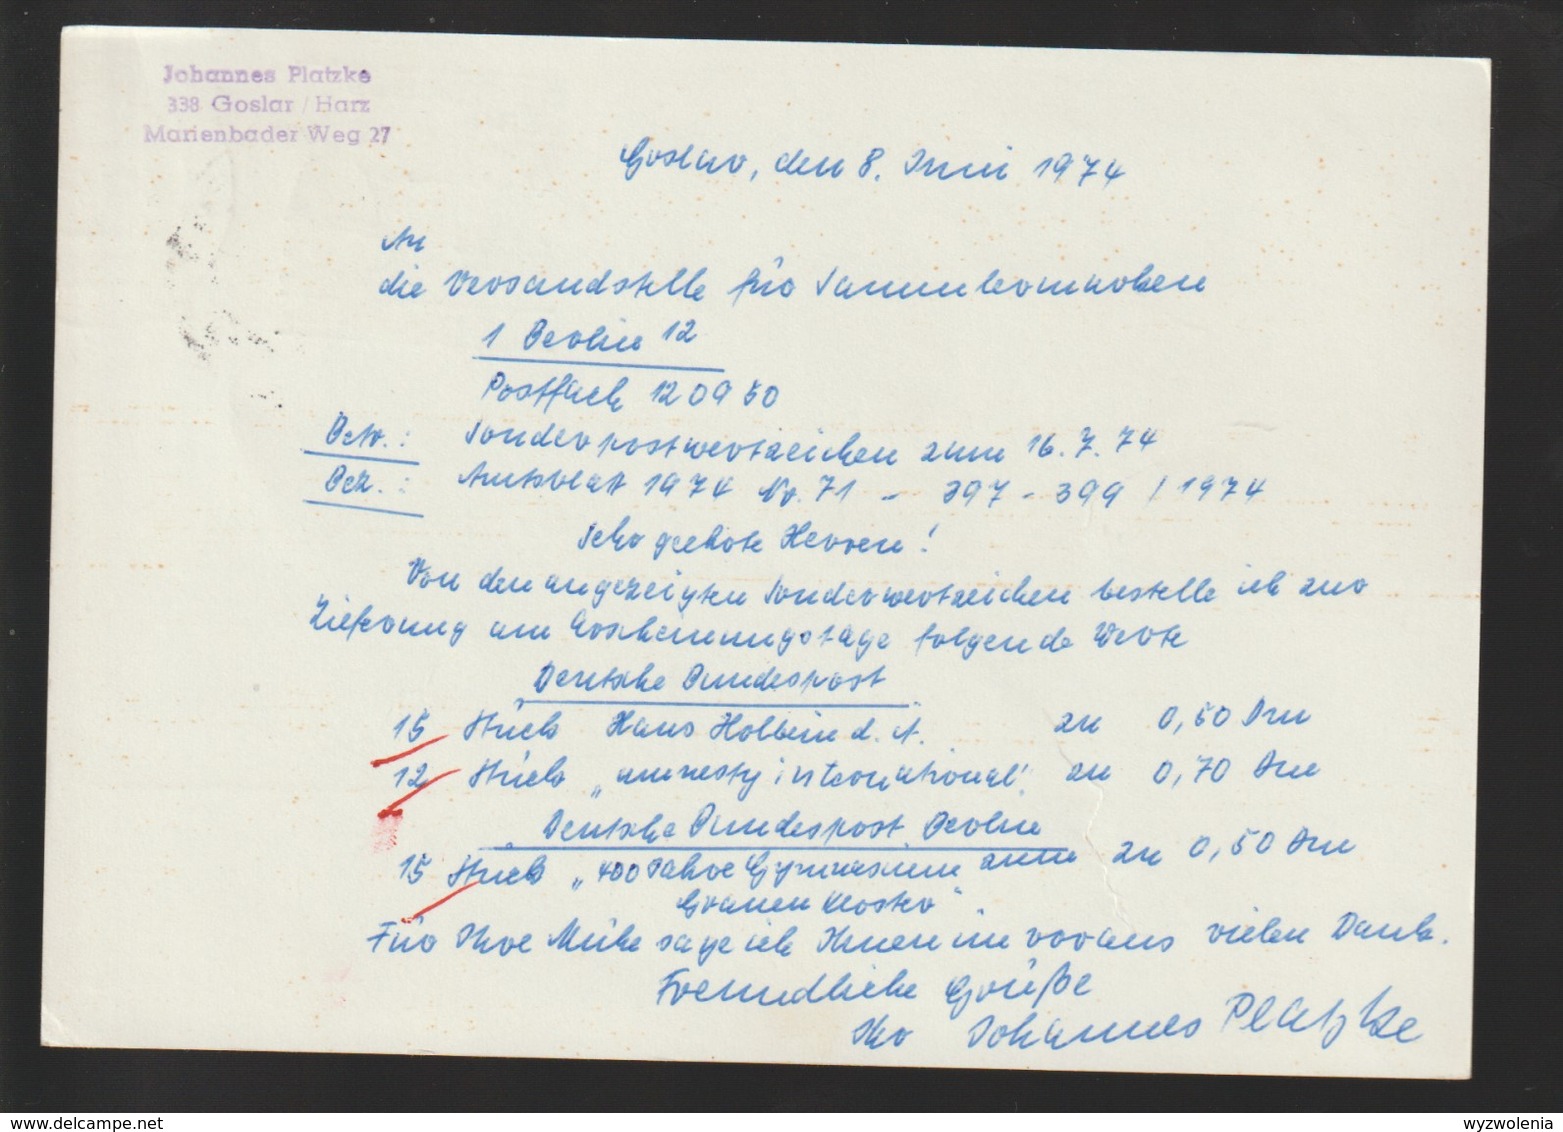 Johannes Platzke
338 Goslar / Harz
Marienbader Weg 27
Goslar, den 8. Juni 1974
An
die Versandstelle für Sammlermarken
1 Berlin 12
Postfach 120950
Betr.: Sonderpostwertzeichen zum 16.7.74
Bez.: Amtsblatt 1974 Nr. 71 - 397 - 399 / 1974
Sehr geehrte Herren!
Von den angezeigten Sonderwertzeichen bestelle ich zur
Lieferung am Erscheinungstage folgende Werte
Deutsche Bundespost
15 Stück Hans Holbein d. Ä. zu 0,50 Dm
12 Stück „amnesty international" zu 0,70 Dm
Deutsche Bundespost Berlin
15 Stück „400 Jahre Gymnasium zum zu 0,50 Dm
Grauen Kloster"
Für Ihre Mühe sage ich Ihnen im voraus vielen Dank.
Freundliche Grüße
Ihr Johannes Platzke
wyzwolenia